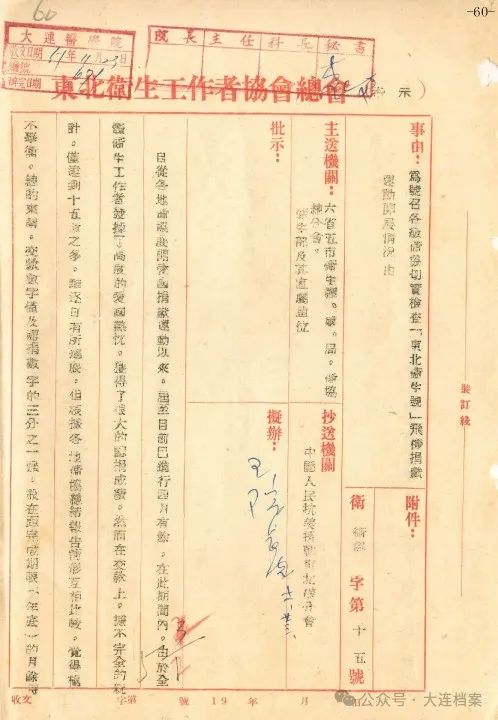 -60-
60
大連醫學院
收文日期
11年11月23日
辦完日期
院長 主任 科長 秘書
東北衛生工作者協會總會
示）
事由：為號召各級衛協切實檢查「東北衛生號」飛機捐獻
運動開展情況由
附件：
衛 字第十五號
主送機關：六省五市衛生
總分會。
衛生部及其直屬單位
抄送機關
中國人民抗美援朝東北總分會
批示：
擬辦：
自從各地 展開愛國捐獻運動以來，截至目前已進行四月有餘，在此期間內，由於全
體衛生工作者發揮了高度的愛國熱忱，獲得了很大的認捐成績。然而在交款上，據不完全的統
計，僅達到十五 之多。雖逐日有所進展，但根據各地衛協總結報告情形互相比較，覺得極
不平衡。總的來講，交款數字僅及認捐數字的三分之一強。現在距完成期限（年底）的月餘時
裝訂綫
收文 字第 號 19 年 月
公众号·大连档案